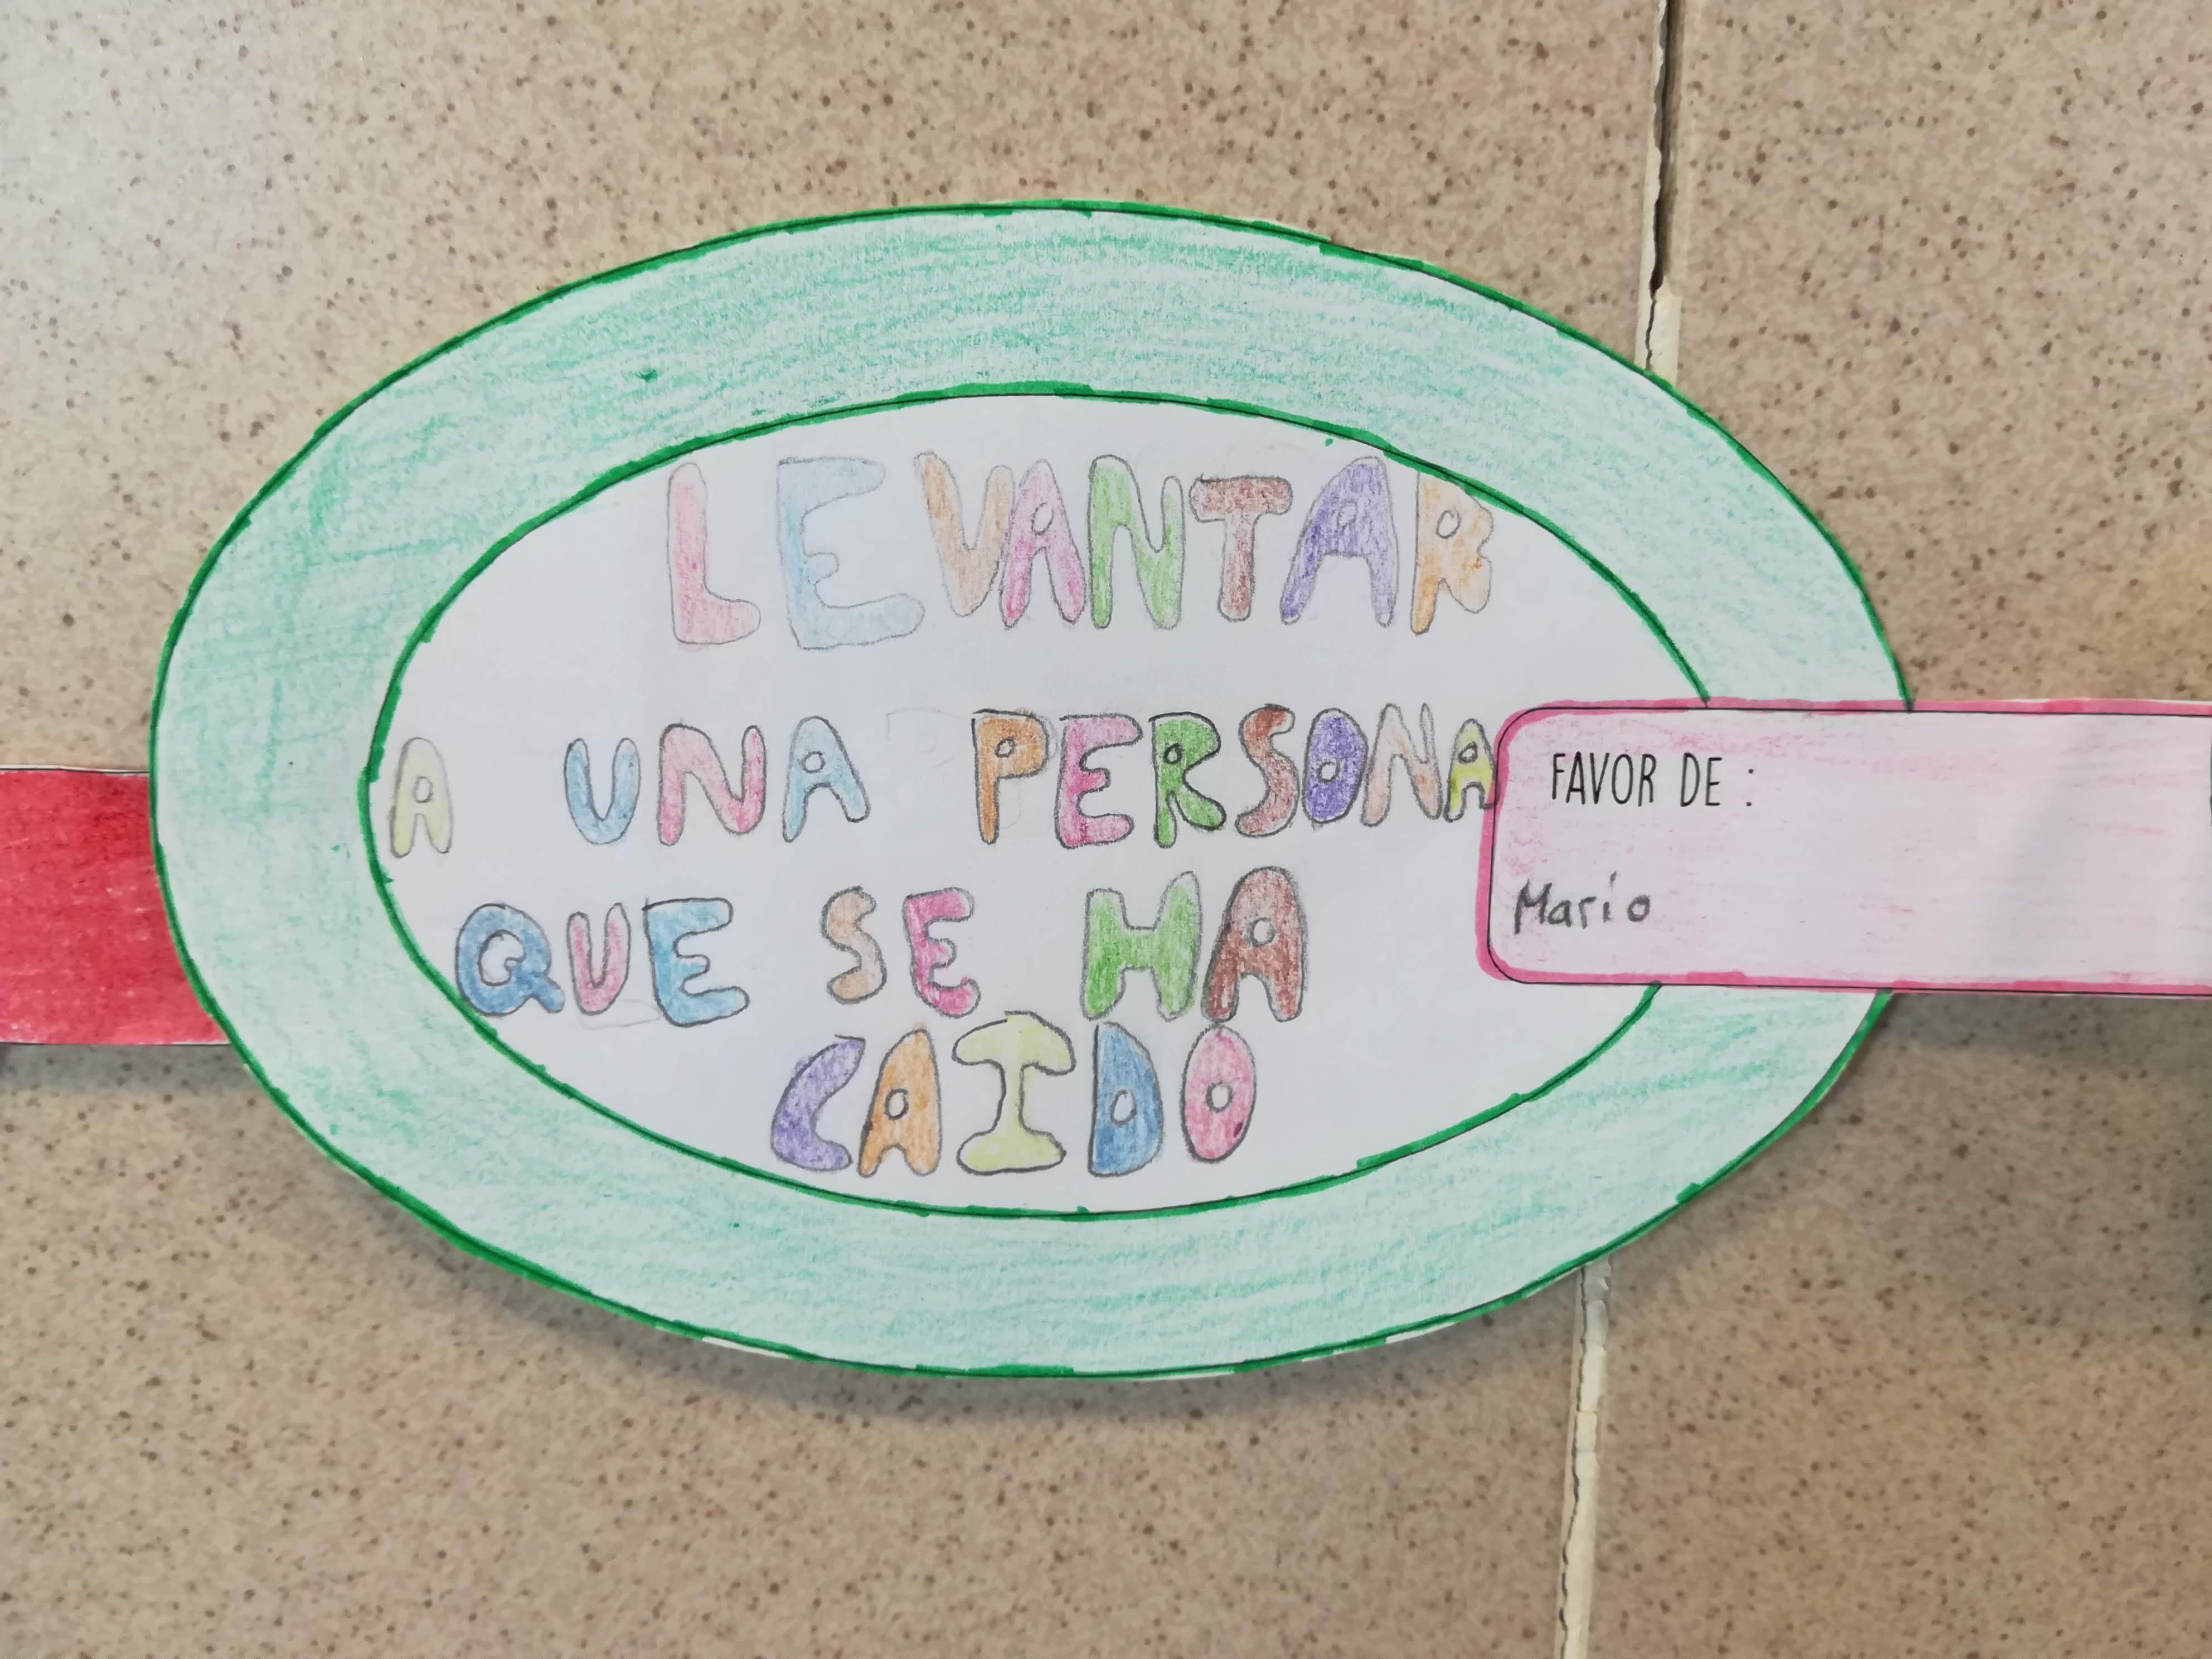 LEVANTAR
A UNA PERSONA
QUE SE HA
CAIDO
FAVOR DE :
Mario